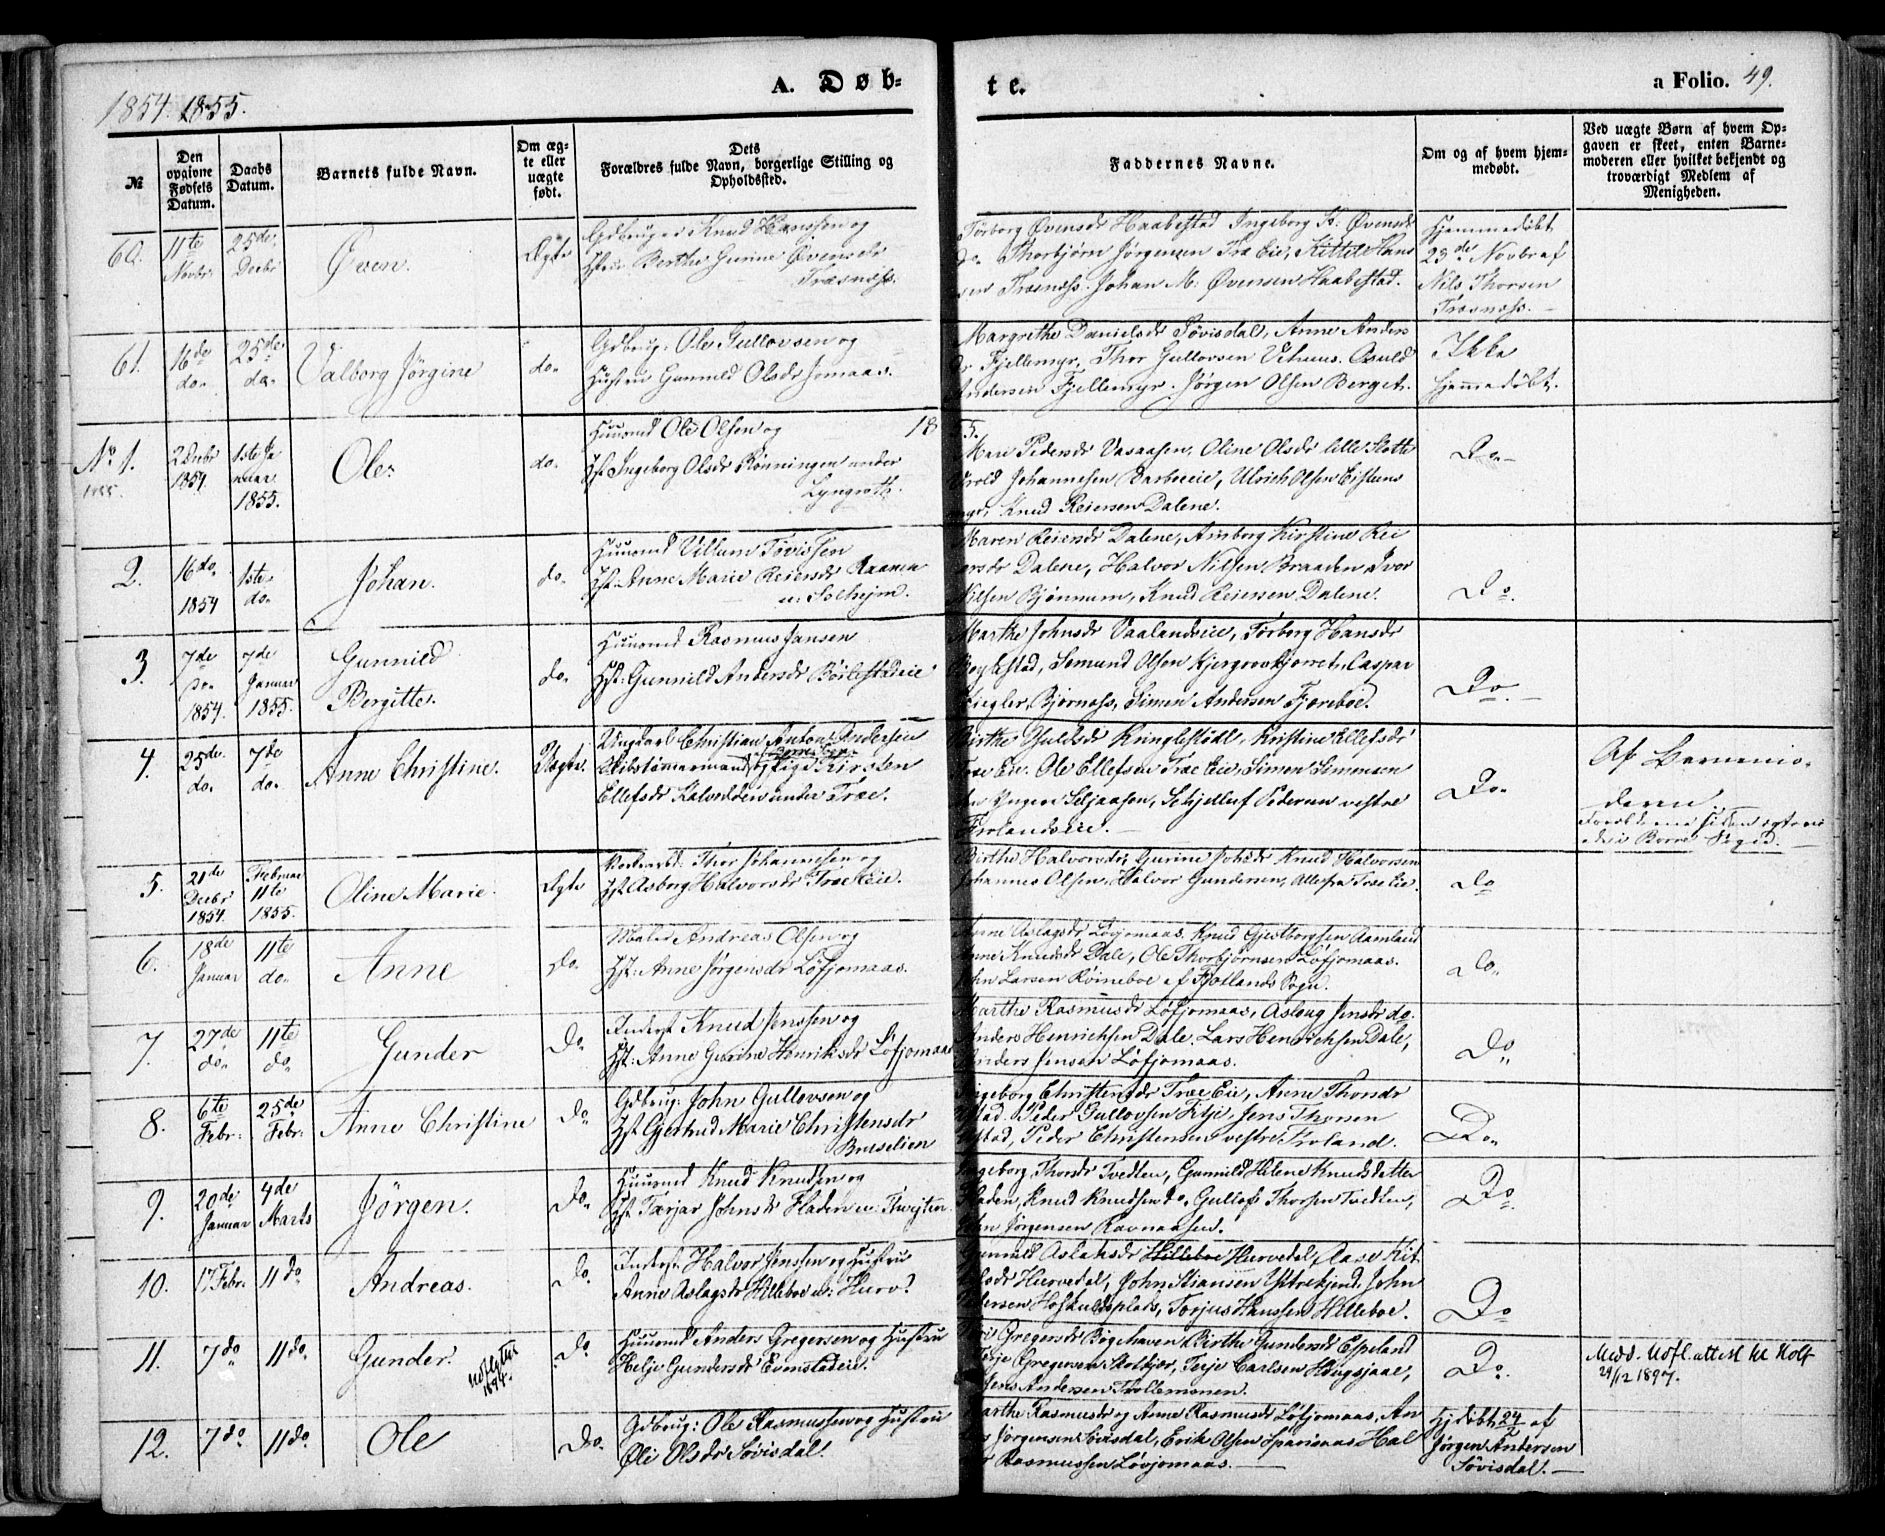 1854. 1855.
A. Døb-
te.
a Folio. 49.
№
Den opgivne Fødsels Datum.
Daabs Datum.
Barnets fulde Navn.
Om ægte eller uægte født.
Dets Forældres fulde Navn, borgerlige Stilling og Opholdssted.
Faddernes Navne.
Om og af hvem hjemmedøbt.
Ved uægte Børn af hvem Opgaven er skeet, enten Barnemoderen eller hvilket bekjendt og troværdigt Medlem af Menigheden.
60. 11te Novbr. 25de Decbr Øven. Ægte
Gdbruger Knud Hanssen og
Hstru Berthe Gurine Øvensdr
Træsnæss.
Torborg Øvensdr Haabestad Ingeborg K. Øvensdr
do. Thorbjørn Jørgensen Træ Eie, Kittil Hans
sen Træsnæss. Johan M. Øvensen Haabestad.
Hjemmedøbt
23de Novbr af
Nils Thorsen
Træsnæss.
61. 16de do. 25de do. Valborg Jørgine do.
Gdbrug: Ole Gullovsen og
Hustru Gunnild Olsdr Jomaas.
Margrethe Danielsdr Søvisdal, Anne Anders
dr Fjellemyr, Thor Gullovsen Vehuus. Osuld
Andersen Fjellemyr. Jørgen Olsen Berget.
Ikke
hjemmedøbt.
1855.
No 1. 2 Decbr 1854 1ste Januar 1855. Ole. do.
Huusmd Ole Olsen og
Hst. Ingeborg Olsdr Rønningen under
Lyngroth.
Mari Pedersdr Vasaasen, Oline Olsdr lille Slotte
Johannesen Barboeie, Ulrich Olsen
Knud Reiersen Dalene.
Do
2. 16 do. 1854 1ste do. Johan. do.
Huusmd Villum Tovissen
Hst. Anne Marie Reiersdr Raanen
u. Solhejm.
Maren Reiersdr Dalene, Amborg Kirstine Rei
ersdr Dalene, Halvor Nilsen Braaden Ivar
Nilsen Bjønnum, Knud Reiersen Dalene.
Do.
3. 7de do 1854. 7de Januar 1855. Gunnild
Bergitte. do.
Huusmd Rasmus Jansen
Hst: Gunnild Andersdr Bøilestadeie
Marthe Johnsdr Vaalandseie, Torborg Hansdr
Bøylestad, Semund Olsen Caspar
Ziegler Bjørnæss, Simen Andersen Fjæreboe.
Do.
4. 25de do. 7de do. Anne Christine. Uægte.
Ungkarl Christian Anton Andersen
Skibstømmermand og Pige Kirsten
Ellefsdr Kalvedden under Træe.
Birthe Kringlestødl, Kristine Ellefsdr
Træ Eie. Ole Ellefsen Træ Eie, Simen Simensen
Seljaasen, Schjelluf Pedersen vestre
Frolandseie.
Do.
Af Barnemo-
deren
Forældrene siden
i Borre Sogn.
5. 21de Decbr 1854. Februar 11te 1855. Oline Marie. Ægte
Thor Johannesen og
Hst Asborg Halvorsdr Træ Eie.
Birthe Halvorsdr, Gurine Johsdr Knud Halvorsen
Johannes Olsen, Halvor Gundersen, Alle fra Træ Eie.
do
6. 18de Januar 11te do. Anne do.
Maler Andreas Olsen og
Hst: Anne Jørgensdr Løfjomaas.
Anne Aslagsdr Løjomaas. Knud Gjestborgsen Aamland
Anne Knudsdr Dale, Ole Thorbjørnsen Løfjomaas.
John Larsen Rømeboe af Fjotlands Sogn.
do.
7. 27de do. 11te do. Gunder Do
Inderst Knud Jenssen og
Hst: Anne Gurine Henriksdr Løfjomaas
Marthe Rasmusdr Løfjomaas, Aslaug Jensdr do.
Anders Henrichsen Dale. Lars Henrichsen Dale,
Anders Jensen Løfjomaas.
do
8. 6te Febr: 25de Febr: Anne Christine Do
Gdbrug: John Gullovsen og
Hst Gjertrud Marie Christensdr
Bruselien
Ingeborg Christensdr Træ Eie, Anne Thorsdr
Peder Gullovsen Jens Thorsen
Peder Christensen vestre Froland.
Do.
9. 20de Januar 4de Marts Jørgen. Do.
Huusmd Knud Knudsen og
Hst Tærjær Johnsdr Fladen u: Thveiten
Ingeborg Thorsdr Tvedten, Gunnild Helene Knudsdatter
Fladen, Knud Knudsen do, Gullof Thorsen Tvedten,
John Jørgensen Ravnaasen.
Do.
10. 17 Febr. 11 do Andreas. Do
Inderst Halvor Jenssen og Hustru
Anne Aslagsdr Hilleboe u: Hurv?
Gunnild Aslaksdr Hilleboe Hurvedal, Aase Kit
tilsdr Hurvedal, John Stiansen Ystrekjend, John
Pedersen Hofskuldsplads, Torjus Hanssen Hilleboe.
Do
11. 7 do 11 do. Gunder. Udflyttet 1894. Do
Huusmd Anders Gregersen og Hustru
Helje Gundersdr Evensteteie.
Gregersdr Bøgehaven Birthe Gundersdr Espeland
Terje Gregersen Stolkjær, Terje Carlsen Haugsjaae,
Jens Andersen Trollemonen.
Do.
Medd. Udfl. attest til Holt
29/12 1897.
12. 7 do 11 do. Ole Do.
Gdbrug: Ole Rasmussen og Hustru
Øli Olsdr Søvisdal.
Marthe Rasmusdr og Anne Rasmusdr Løfjomaas, An
ders Jørgensen Søvisdal, Erik Olsen Sparsaas Hal
vor Rasmussen Løvjomaas.
Hjdøbt 24 af
Jørgen Andersen
Søvisdal.